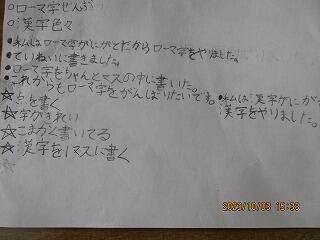 ○ローマ字ぜんぶ
○漢字色々
●私はローマ字がにがてだからローマ字をやりました。
●ていねいに書きました。
●ローマ字をちゃんとマスの中に書いた。
これからもローマ字をがんばりたいです。
●私は漢字がにが
漢字をやりました。
☆点を書く
☆字がきれい
☆こまかく書いてる
☆漢字を1マスに書く
☆
2023/10/03 15:33